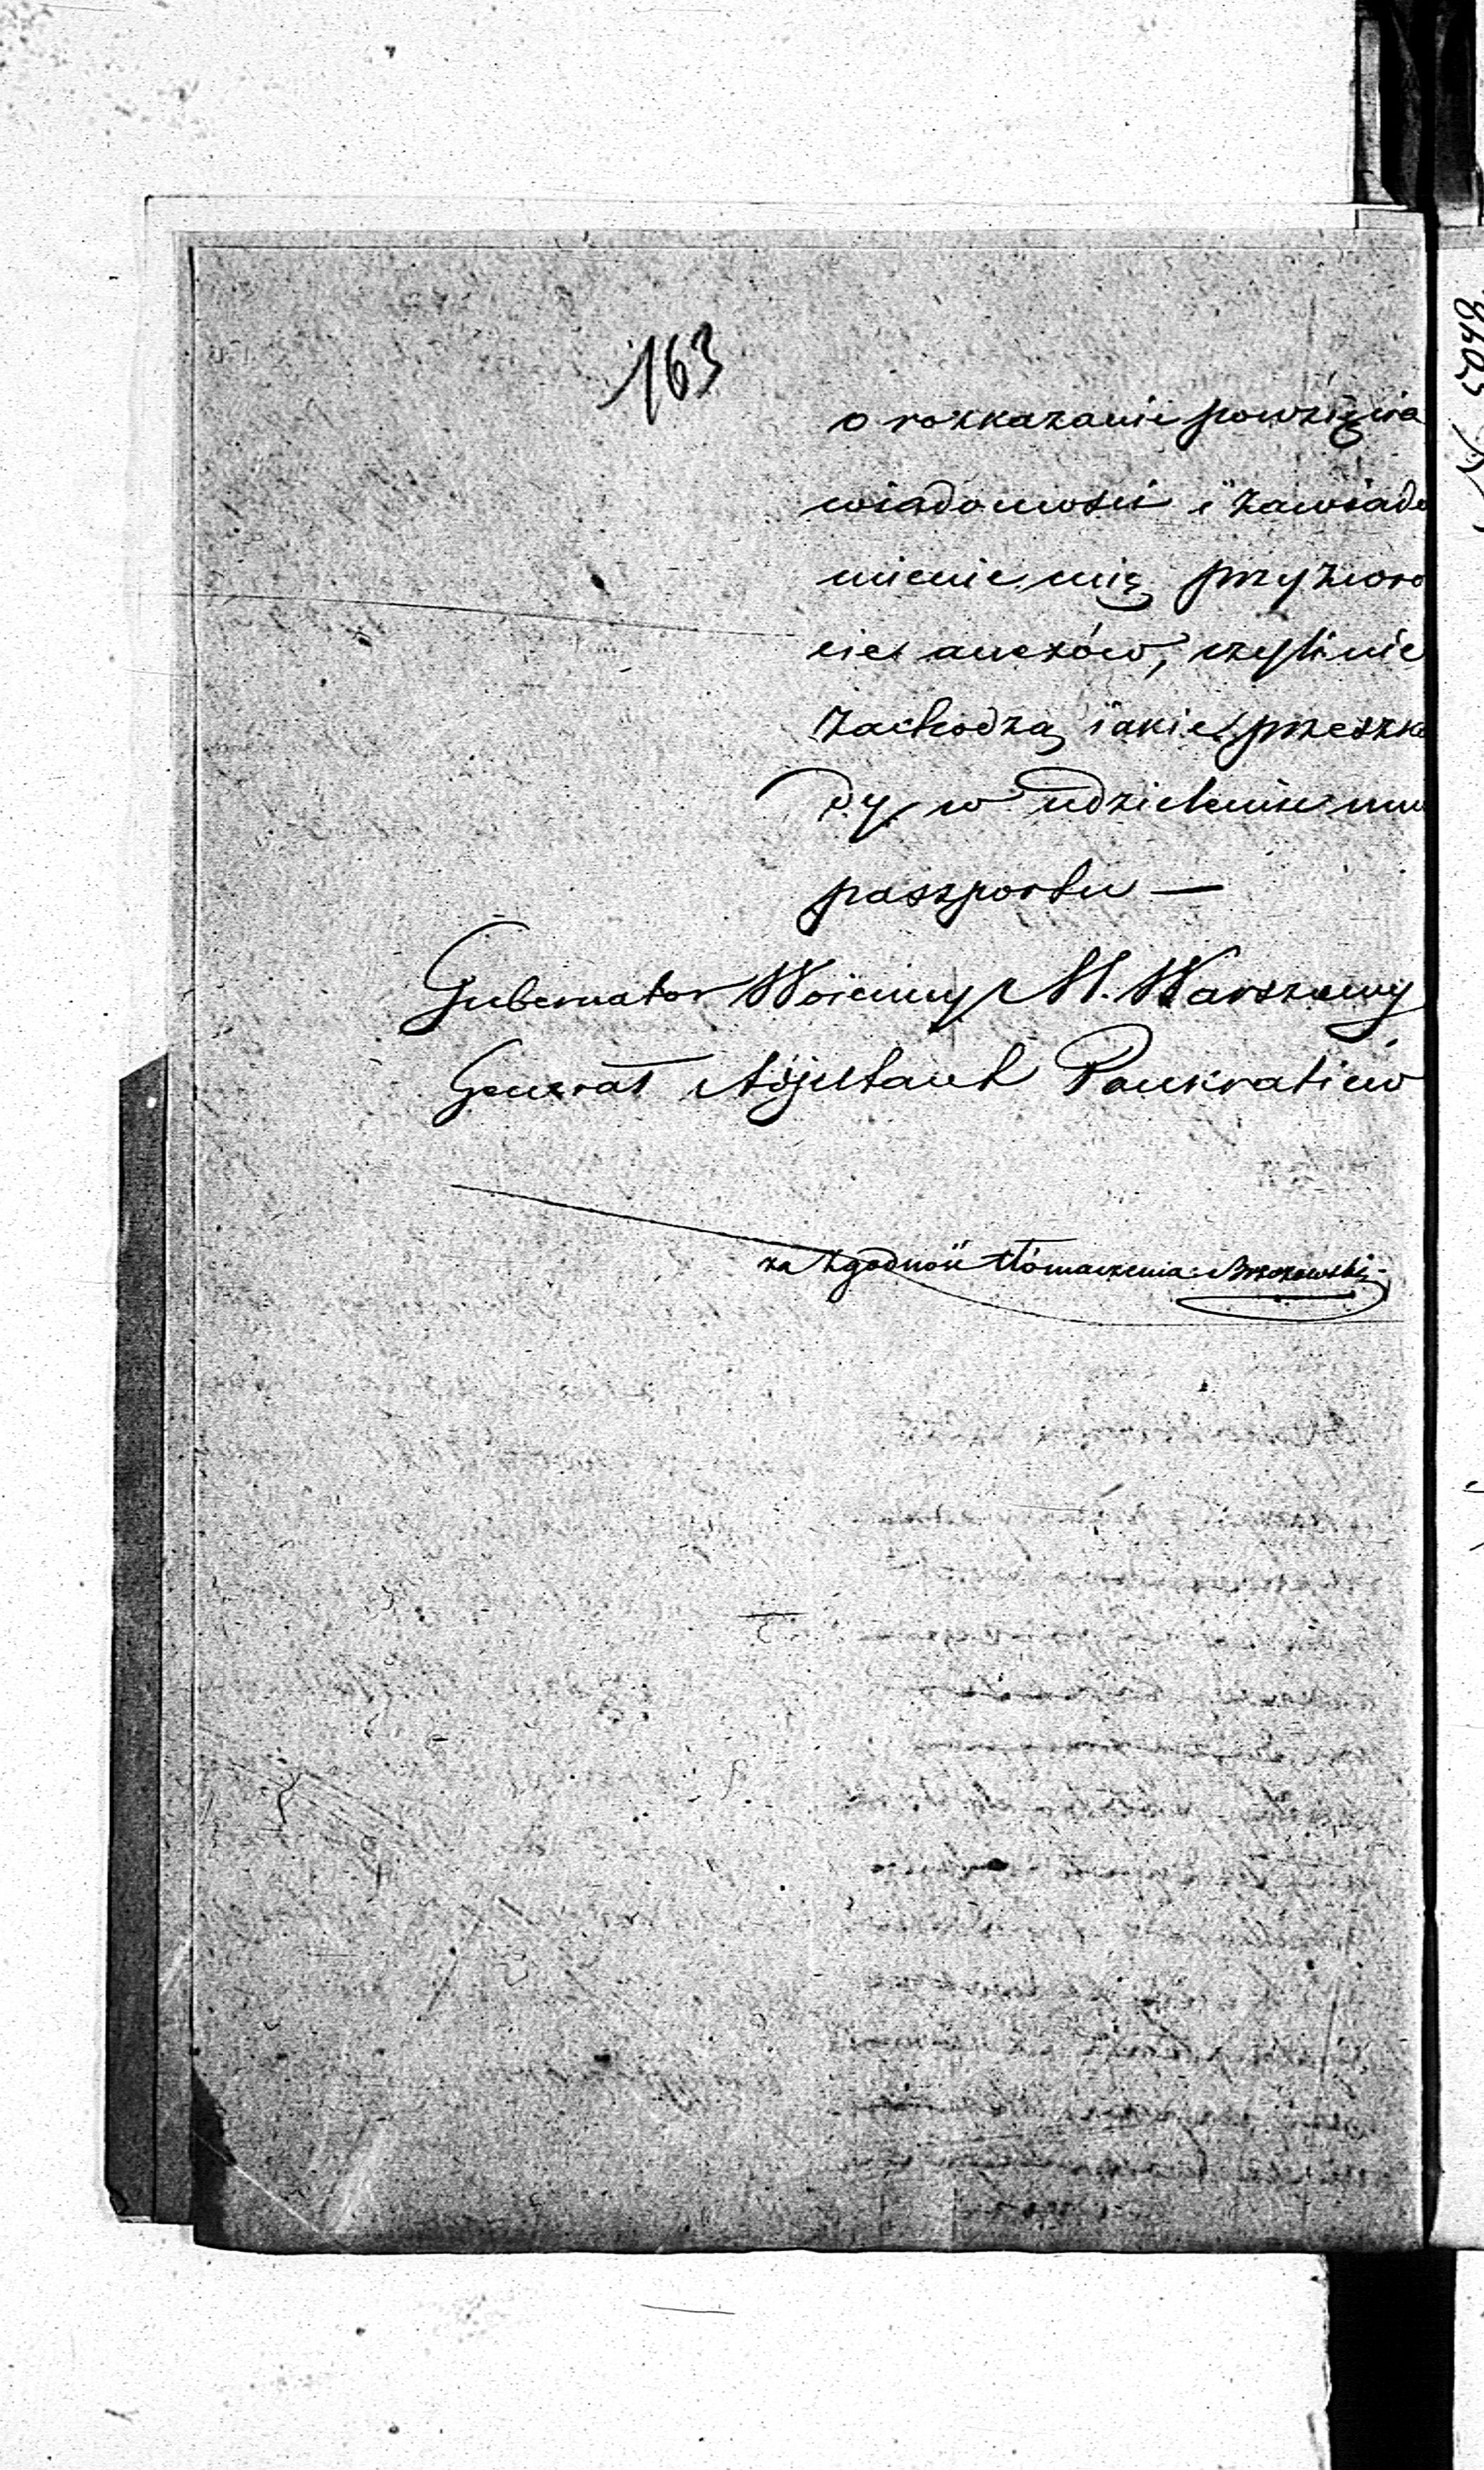 163
o rozkazanie powzięcia
wiadomości i zawiado
mienie mię przy zwro
cie anexów, czyli nie
zachodzą iakie przeszko
dy w udzieleniu mu
paszportu —
Gubernator Woienny M. Warszawy
Generał Adjutant Pankratiew
za zgodność tłómaczenia: Brzozowski